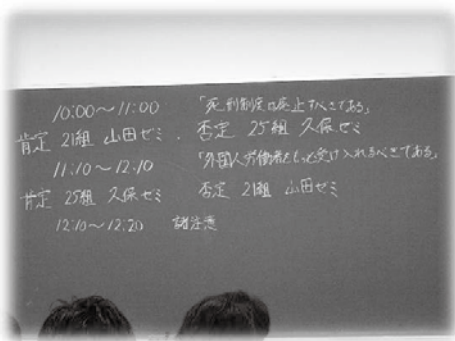 10:00〜11:00 「死刑制度は廃止すべきである」
肯定 21組 山田ゼミ . 否定 25組 久保ゼミ
11:10〜12:10 「外国人労働者をもっと受け入れるべきである」
肯定 25組 久保ゼミ 否定 21組 山田ゼミ
12:10〜12:20 諸注意